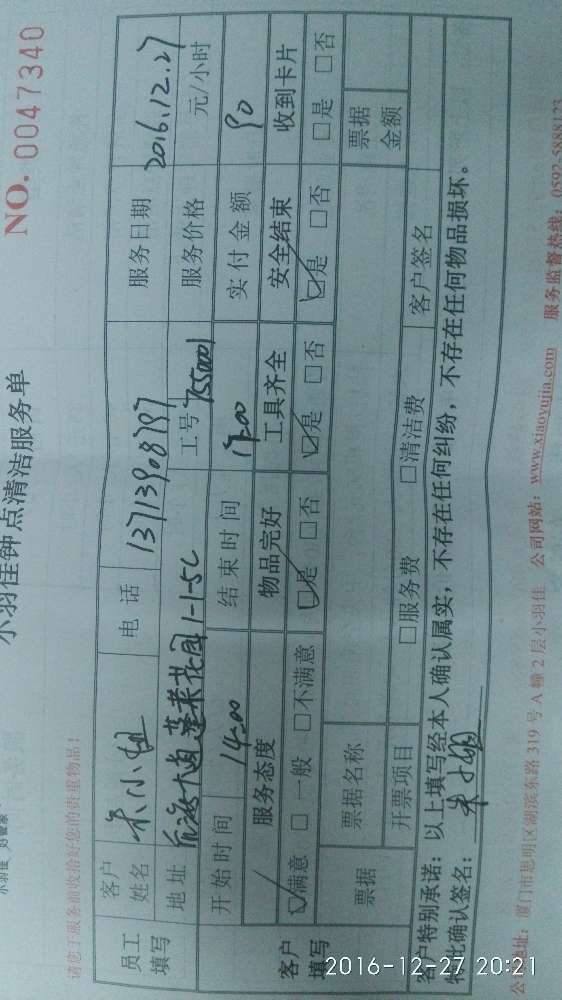 NO. 0047340
小羽佳钟点清洁服务单
请您于服务前收拾好您的贵重物品!
员工填写
客户姓名 朱小姐 电 话 13713908797 服务日期 2016.12.27
地址 后海大道蓬莱花园1-1-5C 工号 服务价格 元/小时
客户填写
开始时间 14:00 结束时间 17:00 实付金额 90
服务态度 物品完好 工具齐全 安全结束 收到卡片
☑满意 □一般 □不满意 ☑是 □否 ☑是 □否 ☑是 □否 □是 □否
票据 票据名称 票据金额
开票项目 □服务费 □清洁费 客户签名
客户特别承诺:以上填写经本人确认属实,不存在任何纠纷,不存在任何物品损坏。
特此确认签名:朱小姐
公司地址:厦门市思明区湖滨东路 319 号 A 幢 2 层小羽佳 公司网站:www.xiaoyujia.com 服务监督热线:0592-5888123
2016-12-27 20:21